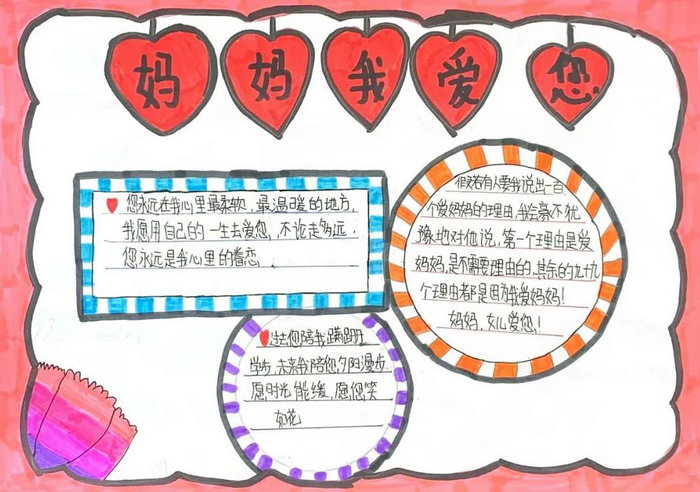 妈妈我爱您
您永远在我心里最柔软,最温暖的地方,
我愿用自己的一生去爱您,不论走多远,
您永远是我心里的眷恋
假若有人要我说出一百
个爱妈妈的理由,我会毫不犹
豫地对他说,第一个理由是爱
妈妈,是不需要理由的,其余的九十九
个理由都是因为我爱妈妈!
妈妈,女儿爱您!
过去您陪我蹒跚
学步,未来我陪您夕阳漫步
愿时光能缓,愿您笑
如花